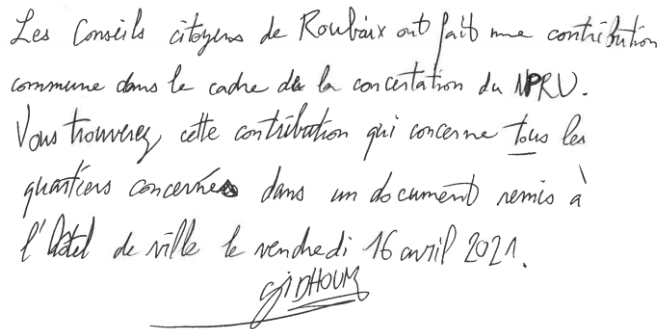 Les Conseils citoyens de Roubaix ont fait une contribution
commune dans le cadre de la concertation du NPRU.
Vous trouverez cette contribution qui concerne tous les
quartiers concernés dans un document remis à
l'Hôtel de ville le vendredi 16 avril 2021.